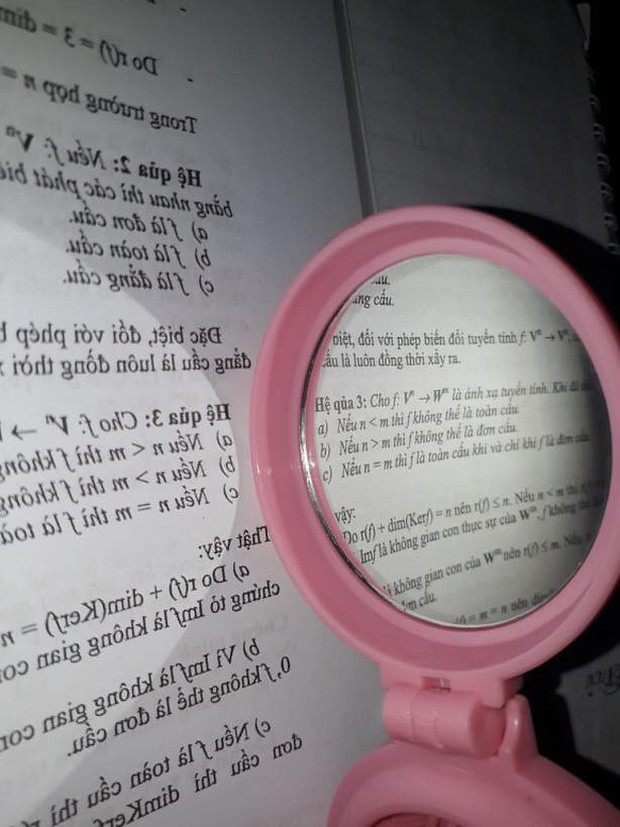 Do r(f) = 3 = dim
Trong trường hợp n =
Hệ qủa 2: Nếu f: Vⁿ
bằng nhau thì các phát biể
a) f là đơn cấu.
b) f là toàn cấu.
c) f là đẳng cấu.
Đặc biệt, đối với phép b
đẳng cấu là luôn đồng thời
Hệ qủa 3: Cho f: Vⁿ →
a) Nếu n < m thì f không
b) Nếu n > m thì f không
c) Nếu n = m thì f là toà
Thật vậy:
a) Do r(f) + dim(Kerf) = n
chứng tỏ Imf là không gian con
b) Vì Imf là không gian con
0, f không thể là đơn cấu.
c) Nếu f là toàn cấu thì
đơn cấu thì dimKerf
ẳng cấu.
biệt, đối với phép biến đổi tuyến tính f: Vⁿ → Vⁿ,
cấu là luôn đồng thời xẩy ra.
Hệ qủa 3: Cho f: Vⁿ → Wᵐ là ánh xạ tuyến tính. Khi đó
a) Nếu n < m thì f không thể là toàn cấu.
b) Nếu n > m thì f không thể là đơn cấu.
c) Nếu n = m thì f là toàn cấu khi và chỉ khi f là đơn cấu
vậy:
Do r(f) + dim(Kerf) = n nên r(f) ≤ n. Nếu n < m thì
Imf là không gian con thực sự của Wᵐ, f không thể
là không gian con của Wᵐ nên r(f) ≤ m. Nếu
đơn cấu.
= m = n nên